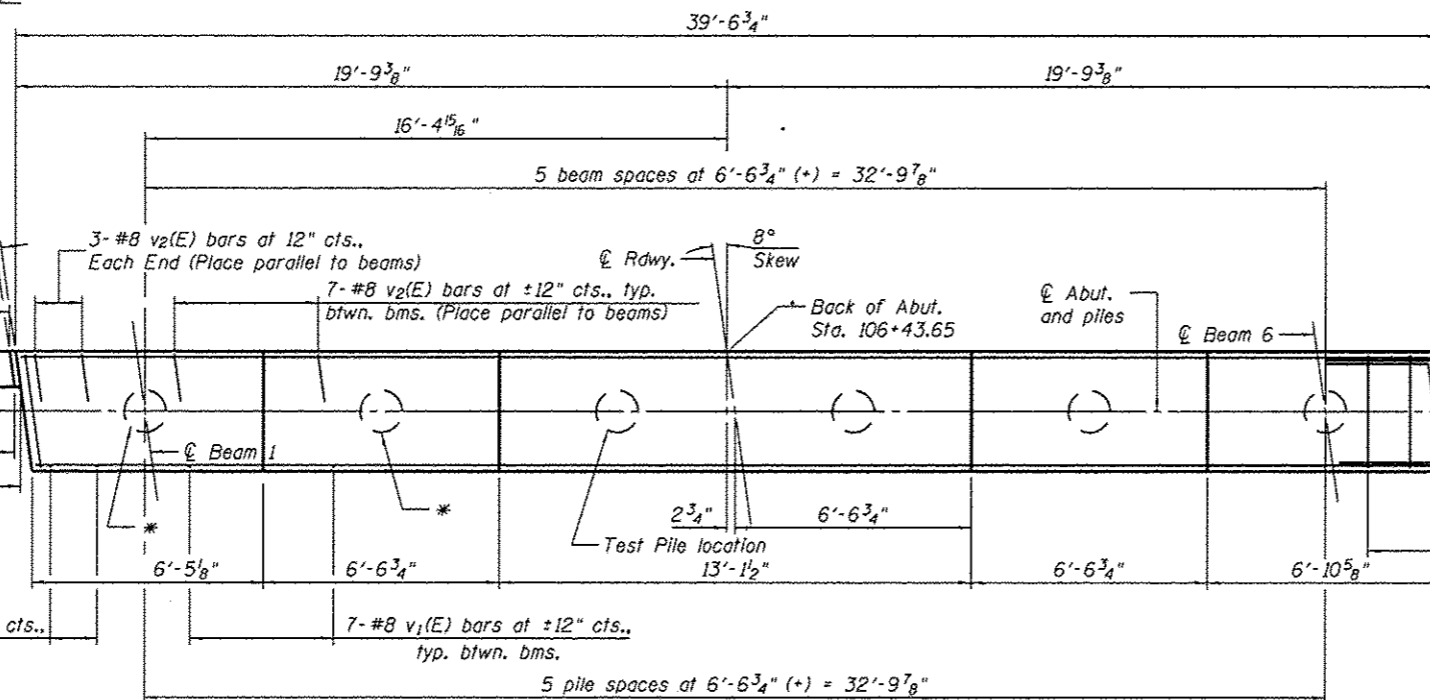 39'-6¾"
19'-9⅜"
19'-9⅜"
16'-4 15/16"
5 beam spaces at 6'-6¾" (+) = 32'-9⅞"
3- #8 v2(E) bars at 12" cts.,
Each End (Place parallel to beams)
7- #8 v2(E) bars at ±12" cts., typ.
btwn. bms. (Place parallel to beams)
℄ Rdwy.
8°
Skew
Back of Abut.
Sta. 106+43.65
℄ Abut.
and piles
℄ Beam 6
℄ Beam 1
*
*
Test Pile location
2¾"
6'-6¾"
6'-5⅛"
6'-6¾"
13'-1½"
6'-6¾"
6'-10⅝"
cts.,
7- #8 v1(E) bars at ±12" cts.,
typ. btwn. bms.
5 pile spaces at 6'-6¾" (+) = 32'-9⅞"